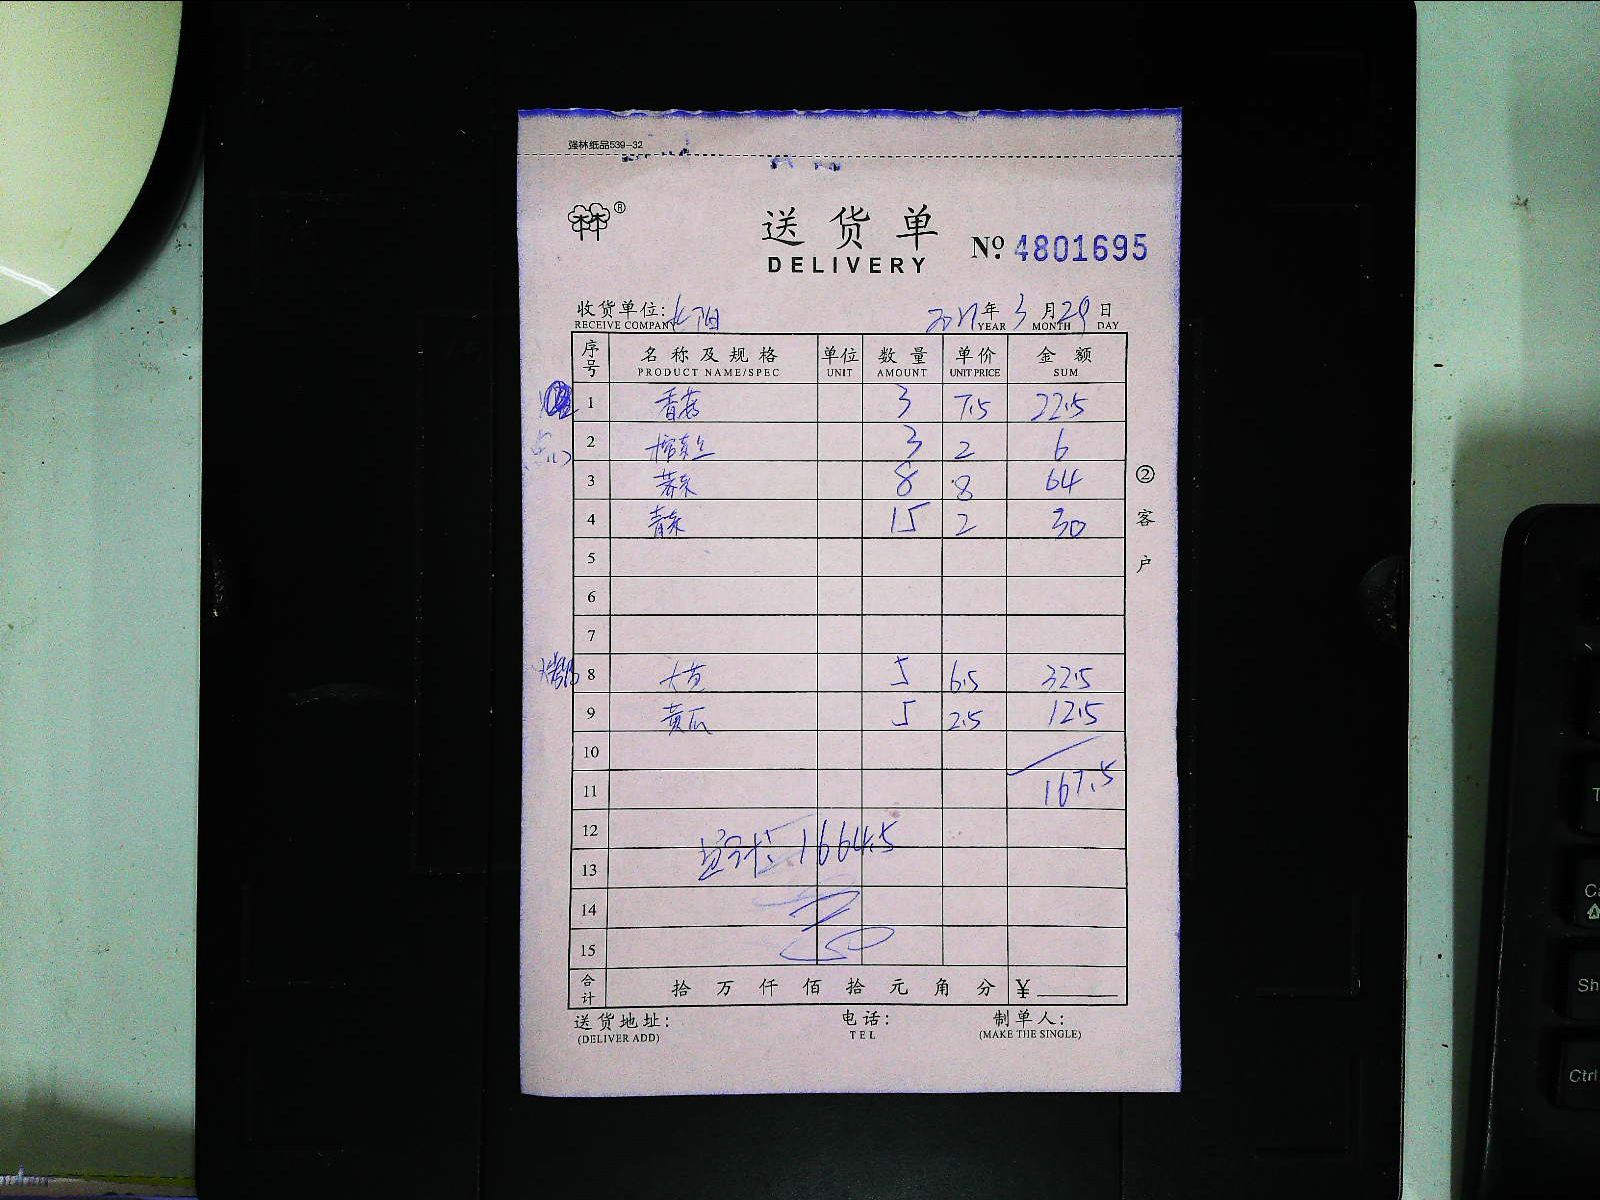 强林纸品539-32
林 ®
送货单
DELIVERY
No. 4801695
收货单位: 长阳 2017年 3月 29日
RECEIVE COMPANY YEAR MONTH DAY
序号 名称及规格 单位 数量 单价 金额
PRODUCT NAME/SPEC UNIT AMOUNT UNIT PRICE SUM
1 3 7.5 22.5
2 3 2 6
3 8 8 64
4 15 2 30
5
6
7
8 5 6.5 32.5
9 黄瓜 5 2.5 12.5
10
11 167.5
12
1664.5
13
14
15
合计 拾 万 仟 佰 拾 元 角 分 ¥
②客户
送货地址: 电话: 制单人:
(DELIVER ADD) TEL (MAKE THE SINGLE)
Sh
Ctrl